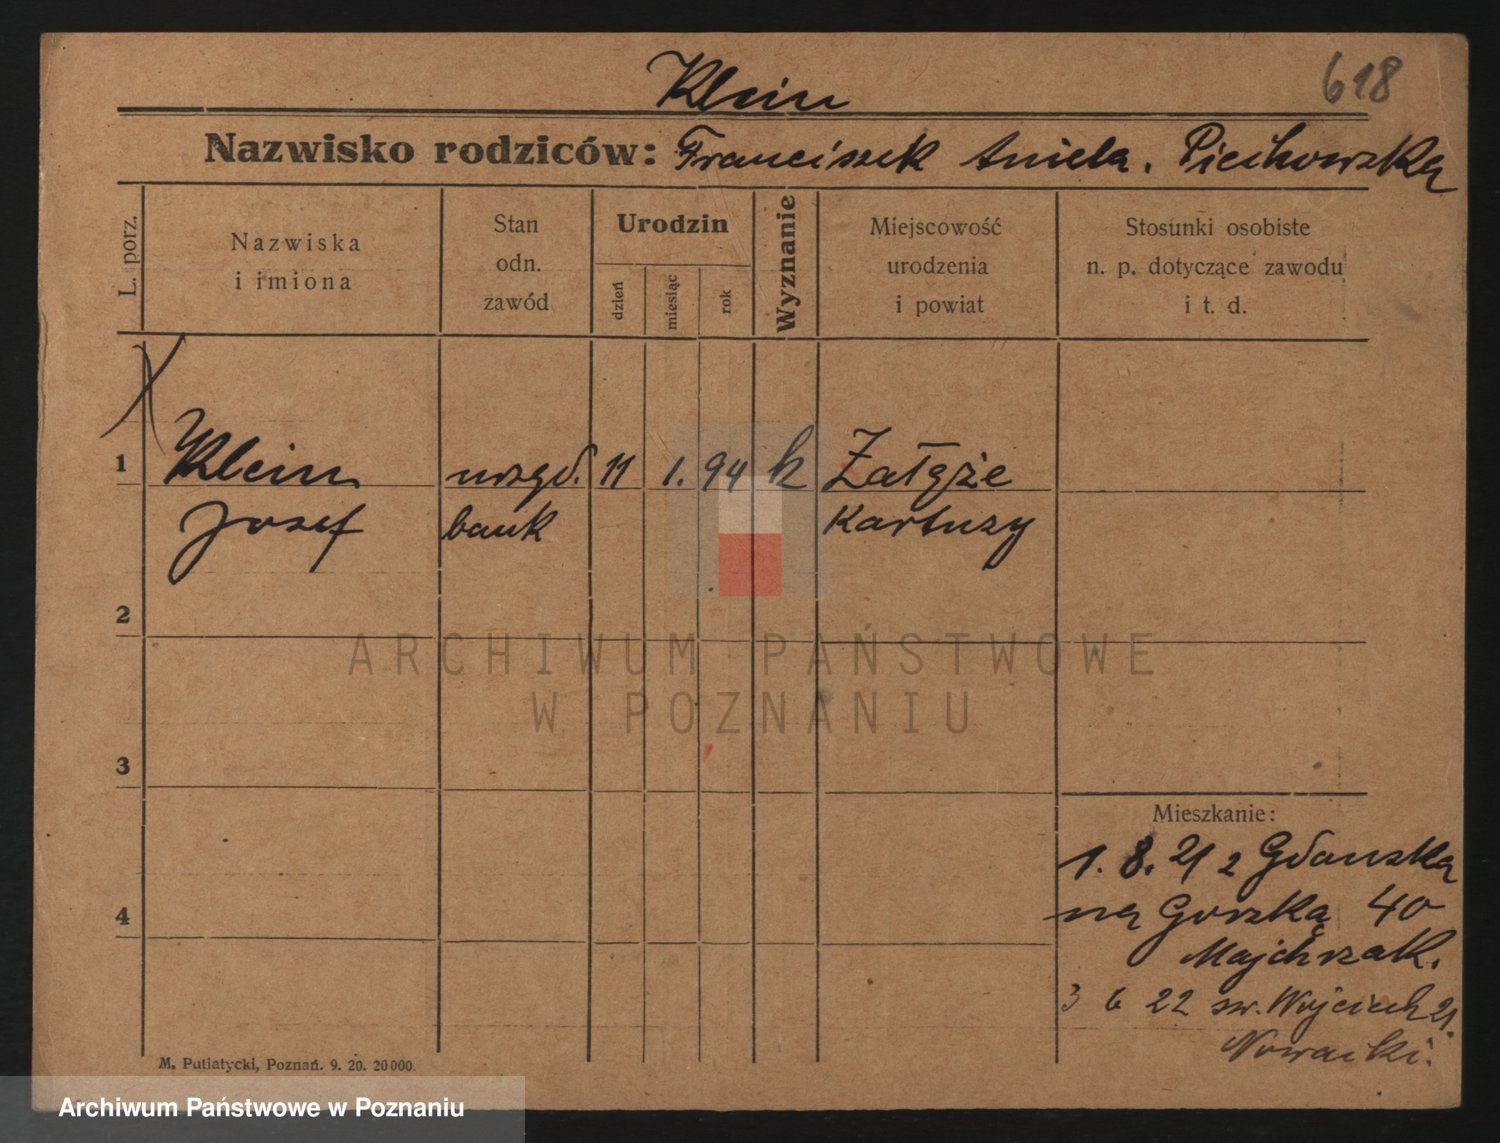 618
Klein
Nazwisko rodziców: Franciszek Aniela. Piechowska
L. porz.
Nazwiska
i imiona
Stan
odn.
zawód
Urodzin
dzień
miesiąc
rok
Wyznanie
Miejscowość
urodzenia
i powiat
Stosunki osobiste
n. p. dotyczące zawodu
i t. d.
1
Klein
Josef
urzęd.
bank
11
1.
94
k
Załgże
Kartuzy
2
ARCHIWUM PAŃSTWOWE
W POZNANIU
3
Mieszkanie:
1. 8. 21 z Gdańska
4
na Gorską 40
Majchrzak.
3 6 22 św. Wojciech 21.
Nowacki.
M. Putiatycki, Poznań. 9. 20. 20000.
Archiwum Państwowe w Poznaniu